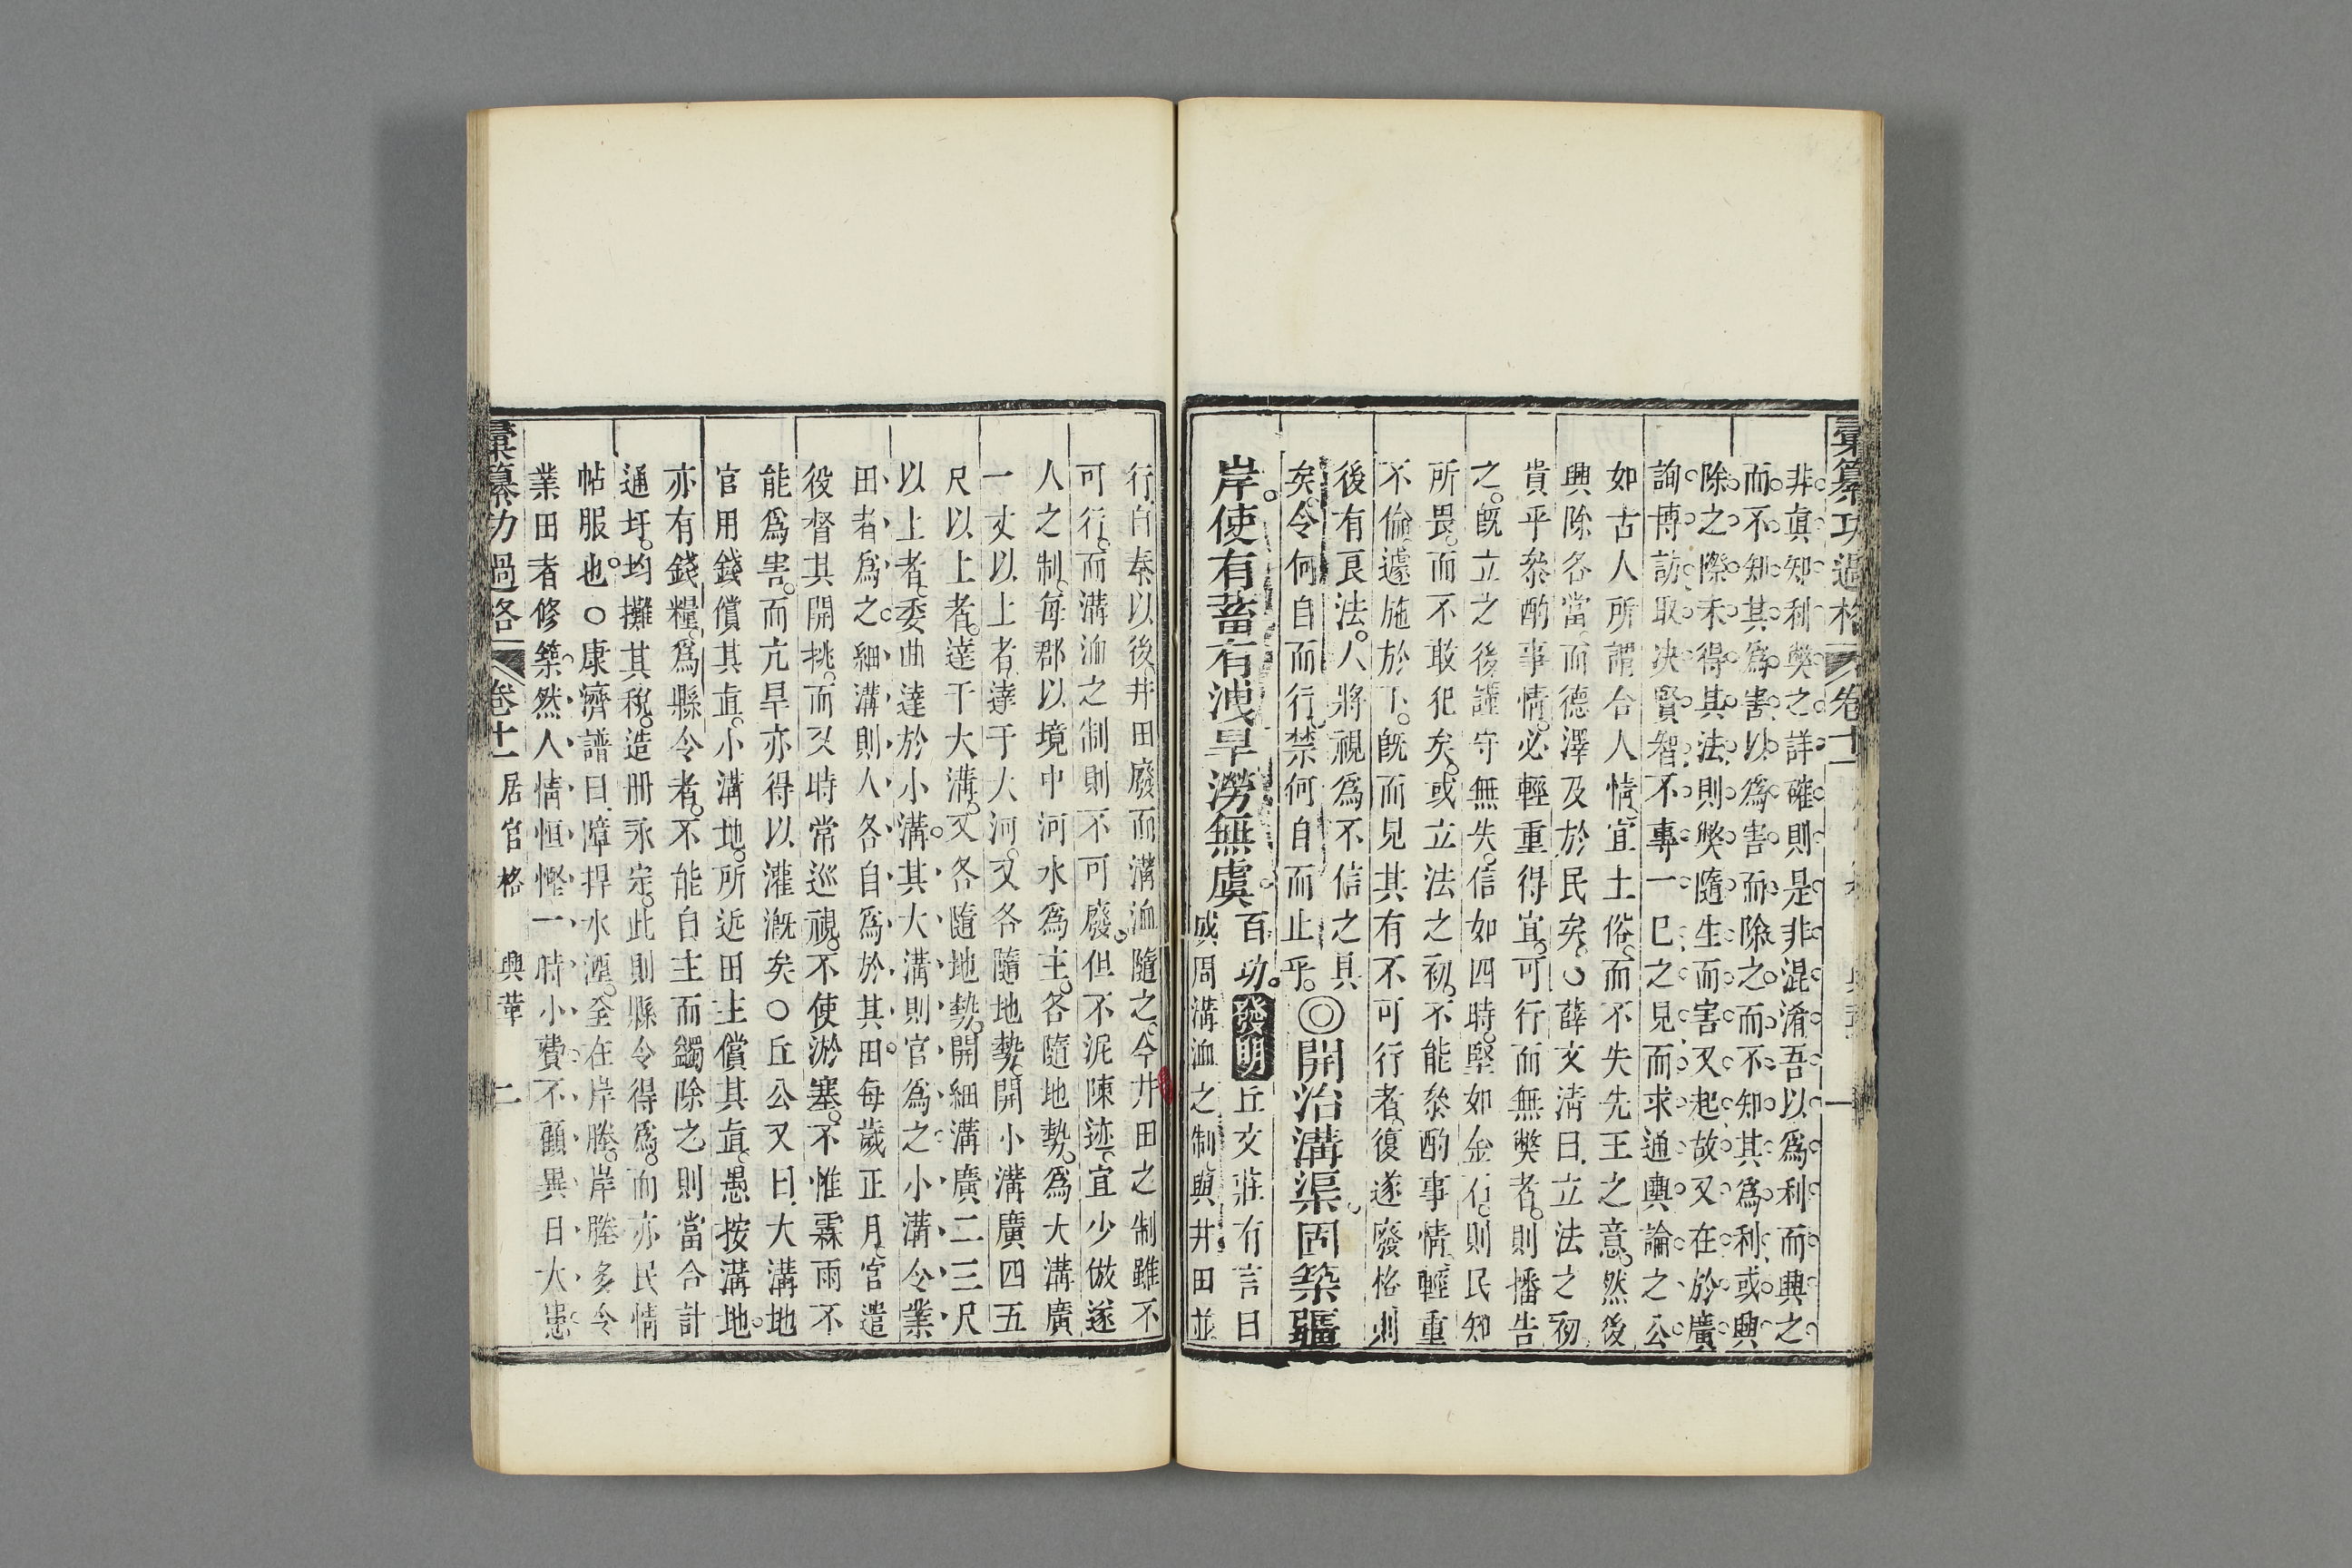 彙纂功過格 卷十一 一
非真知利弊之詳確則是非混淆吾以爲利而興之
而不知其爲害以爲害而除之而不知其爲利或興
除之際未得其法則弊隨生而害又起故又在於廣
詢博訪取決賢智不專一己之見而求通輿論之公
如古人所謂合人情宜土俗而不失先王之意然後
興除各當而德澤及於民矣○薛文清曰立法之初
貴乎叅酌事情必輕重得宜可行而無弊者則播告
之旣立之後謹守無失信如四時堅如金石則民知
所畏而不敢犯矣或立法之初不能叅酌事情輕重
不倫遽施於下旣而見其有不可行者復遂廢格則
後有良法人將視爲不信之具
矣令何自而行禁何自而止乎◎開治溝渠固築疆
岸使有蓄有洩旱澇無虞百功發明丘文莊有言曰
成周溝洫之制與井田並
行自秦以後井田廢而溝洫隨之今井田之制雖不
可行而溝洫之制則不可廢但不泥陳迹宜少倣遂
人之制每郡以境中河水爲主各隨地勢爲大溝廣
一丈以上者達于大河又各隨地勢開小溝廣四五
尺以上者達于大溝又各隨地勢開細溝廣二三尺
以上者委曲達於小溝其大溝則官爲之小溝令業
田者爲之細溝則人各自爲於其田每歲正月官遣
役督其開挑而又時常巡視不使淤塞不惟霖雨不
能爲害而亢旱亦得以灌漑矣○丘公又曰大溝地
官用錢償其直小溝地所近田主償其直愚按溝地
亦有錢糧爲縣令者不能自主而蠲除之則當合計
通圩均攤其稅造冊永定此則縣令得爲而亦民情
帖服也○康濟譜曰障捍水湮全在岸塍岸塍多令
業田者修築然人情恒慳一時小費不顧異日大患
彙纂功過格 卷十一 居官格 興革 二